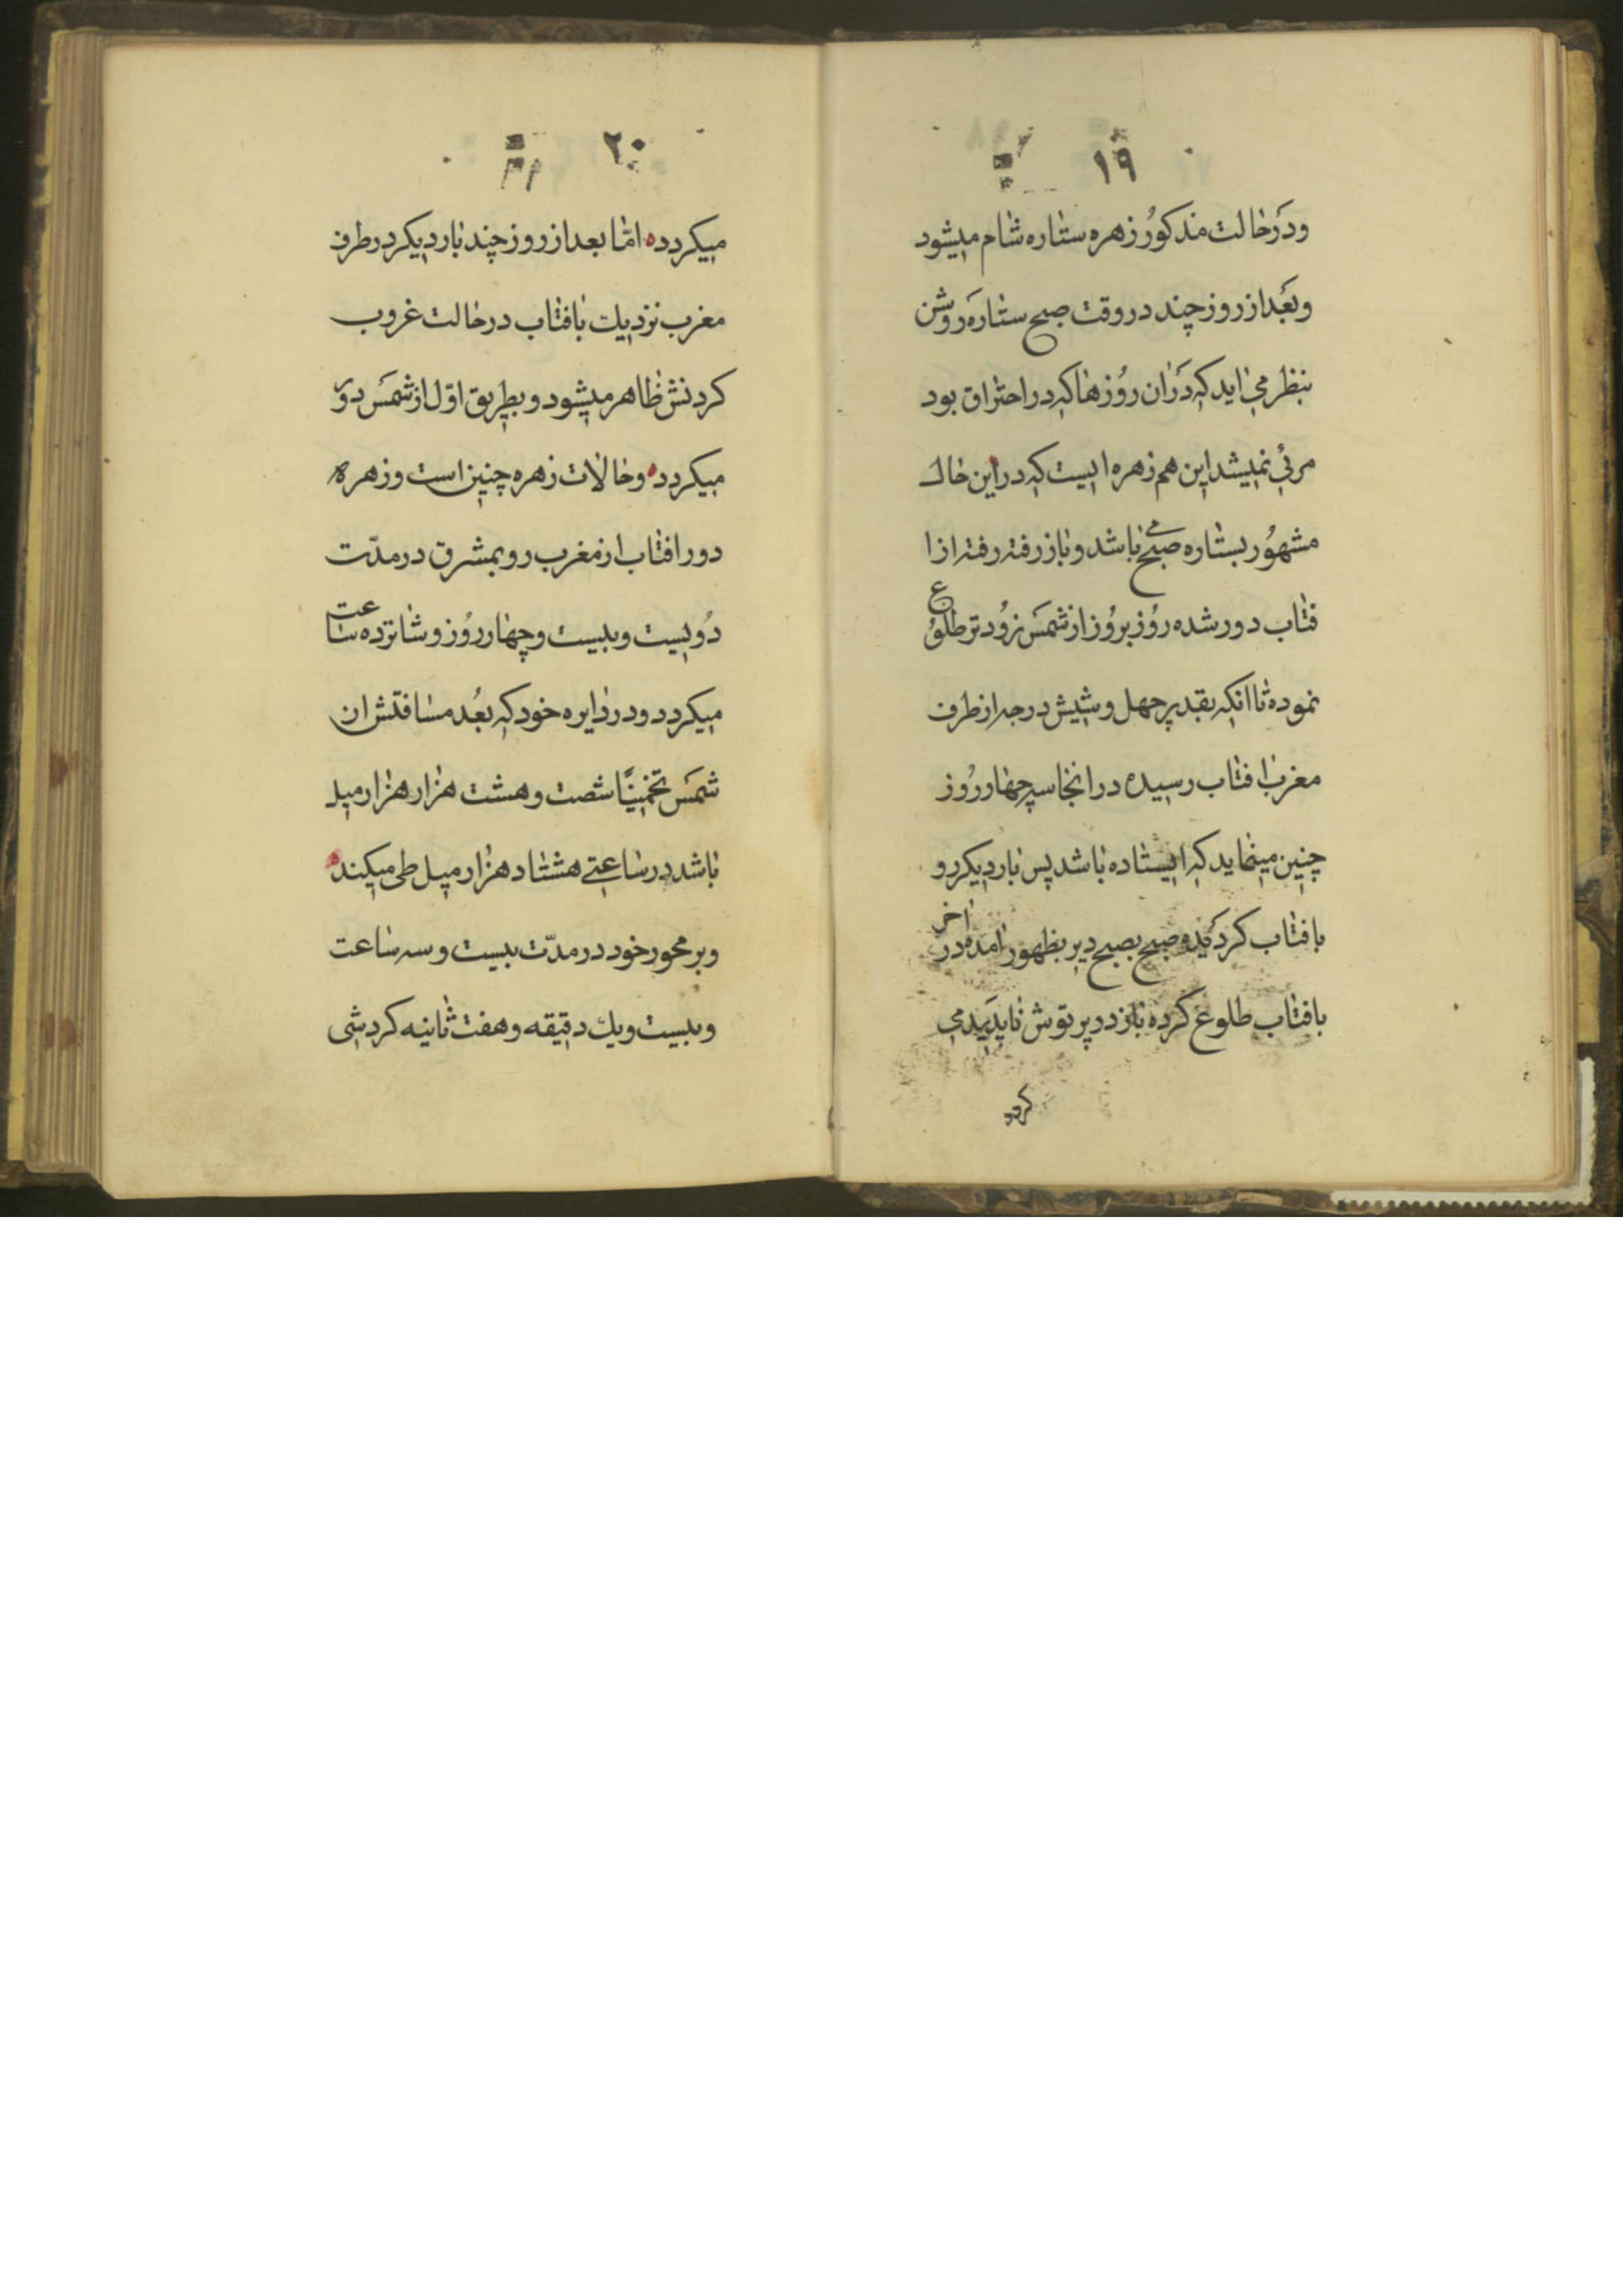 ۱۹
ودر حالت مذکور زهره ستاره شام میشود
وبعد از روز چند در وقت صبح ستاره روشن
بنظر می اید که دران روزها که در احتراق بود
مرئی نمیشد این هم زهره ایست که در این حال
مشهور بستاره صبحی باشد و باز رفته رفته از ا
فتاب دور شده روز بروز از شمس زود تر طلوع
نموده تا انکه بقدیر چهل و شیش درجه از طرف
مغرب افتاب رسیده در انجا سه چهاور روز
چنین مینماید که ایستاده باشد پس بار دیکر رو
بافتاب کردیده صبح بصبح دیر بظهور امده در اخر
بافتاب طلوع کرده باز در پرتوش ناپدید می
کردد
۲۰
میکردد اما بعد از روز چند بار دیکر در طرف
مغرب نزدیک بافتاب در حالت غروب
کردنش ظاهر میشود و بطریق اول از شمس دور
میکردد وحالات زهره چنین است و زهره
دور افتاب از مغرب رو بمشرق در مدت
دویست و بیست و چهاور روز و شانزده ساعت
میکردد ودر دایره خود که بعد مسافتش ان
شمس تخمینا شصت و هشت هزار هزار میل
باشد در ساعتی هشتاد هزار میل طی میکند
وبر محور خود در مدت بیست و سه ساعت
و بیست و یک دقیقه و هفت ثانیه کردشی